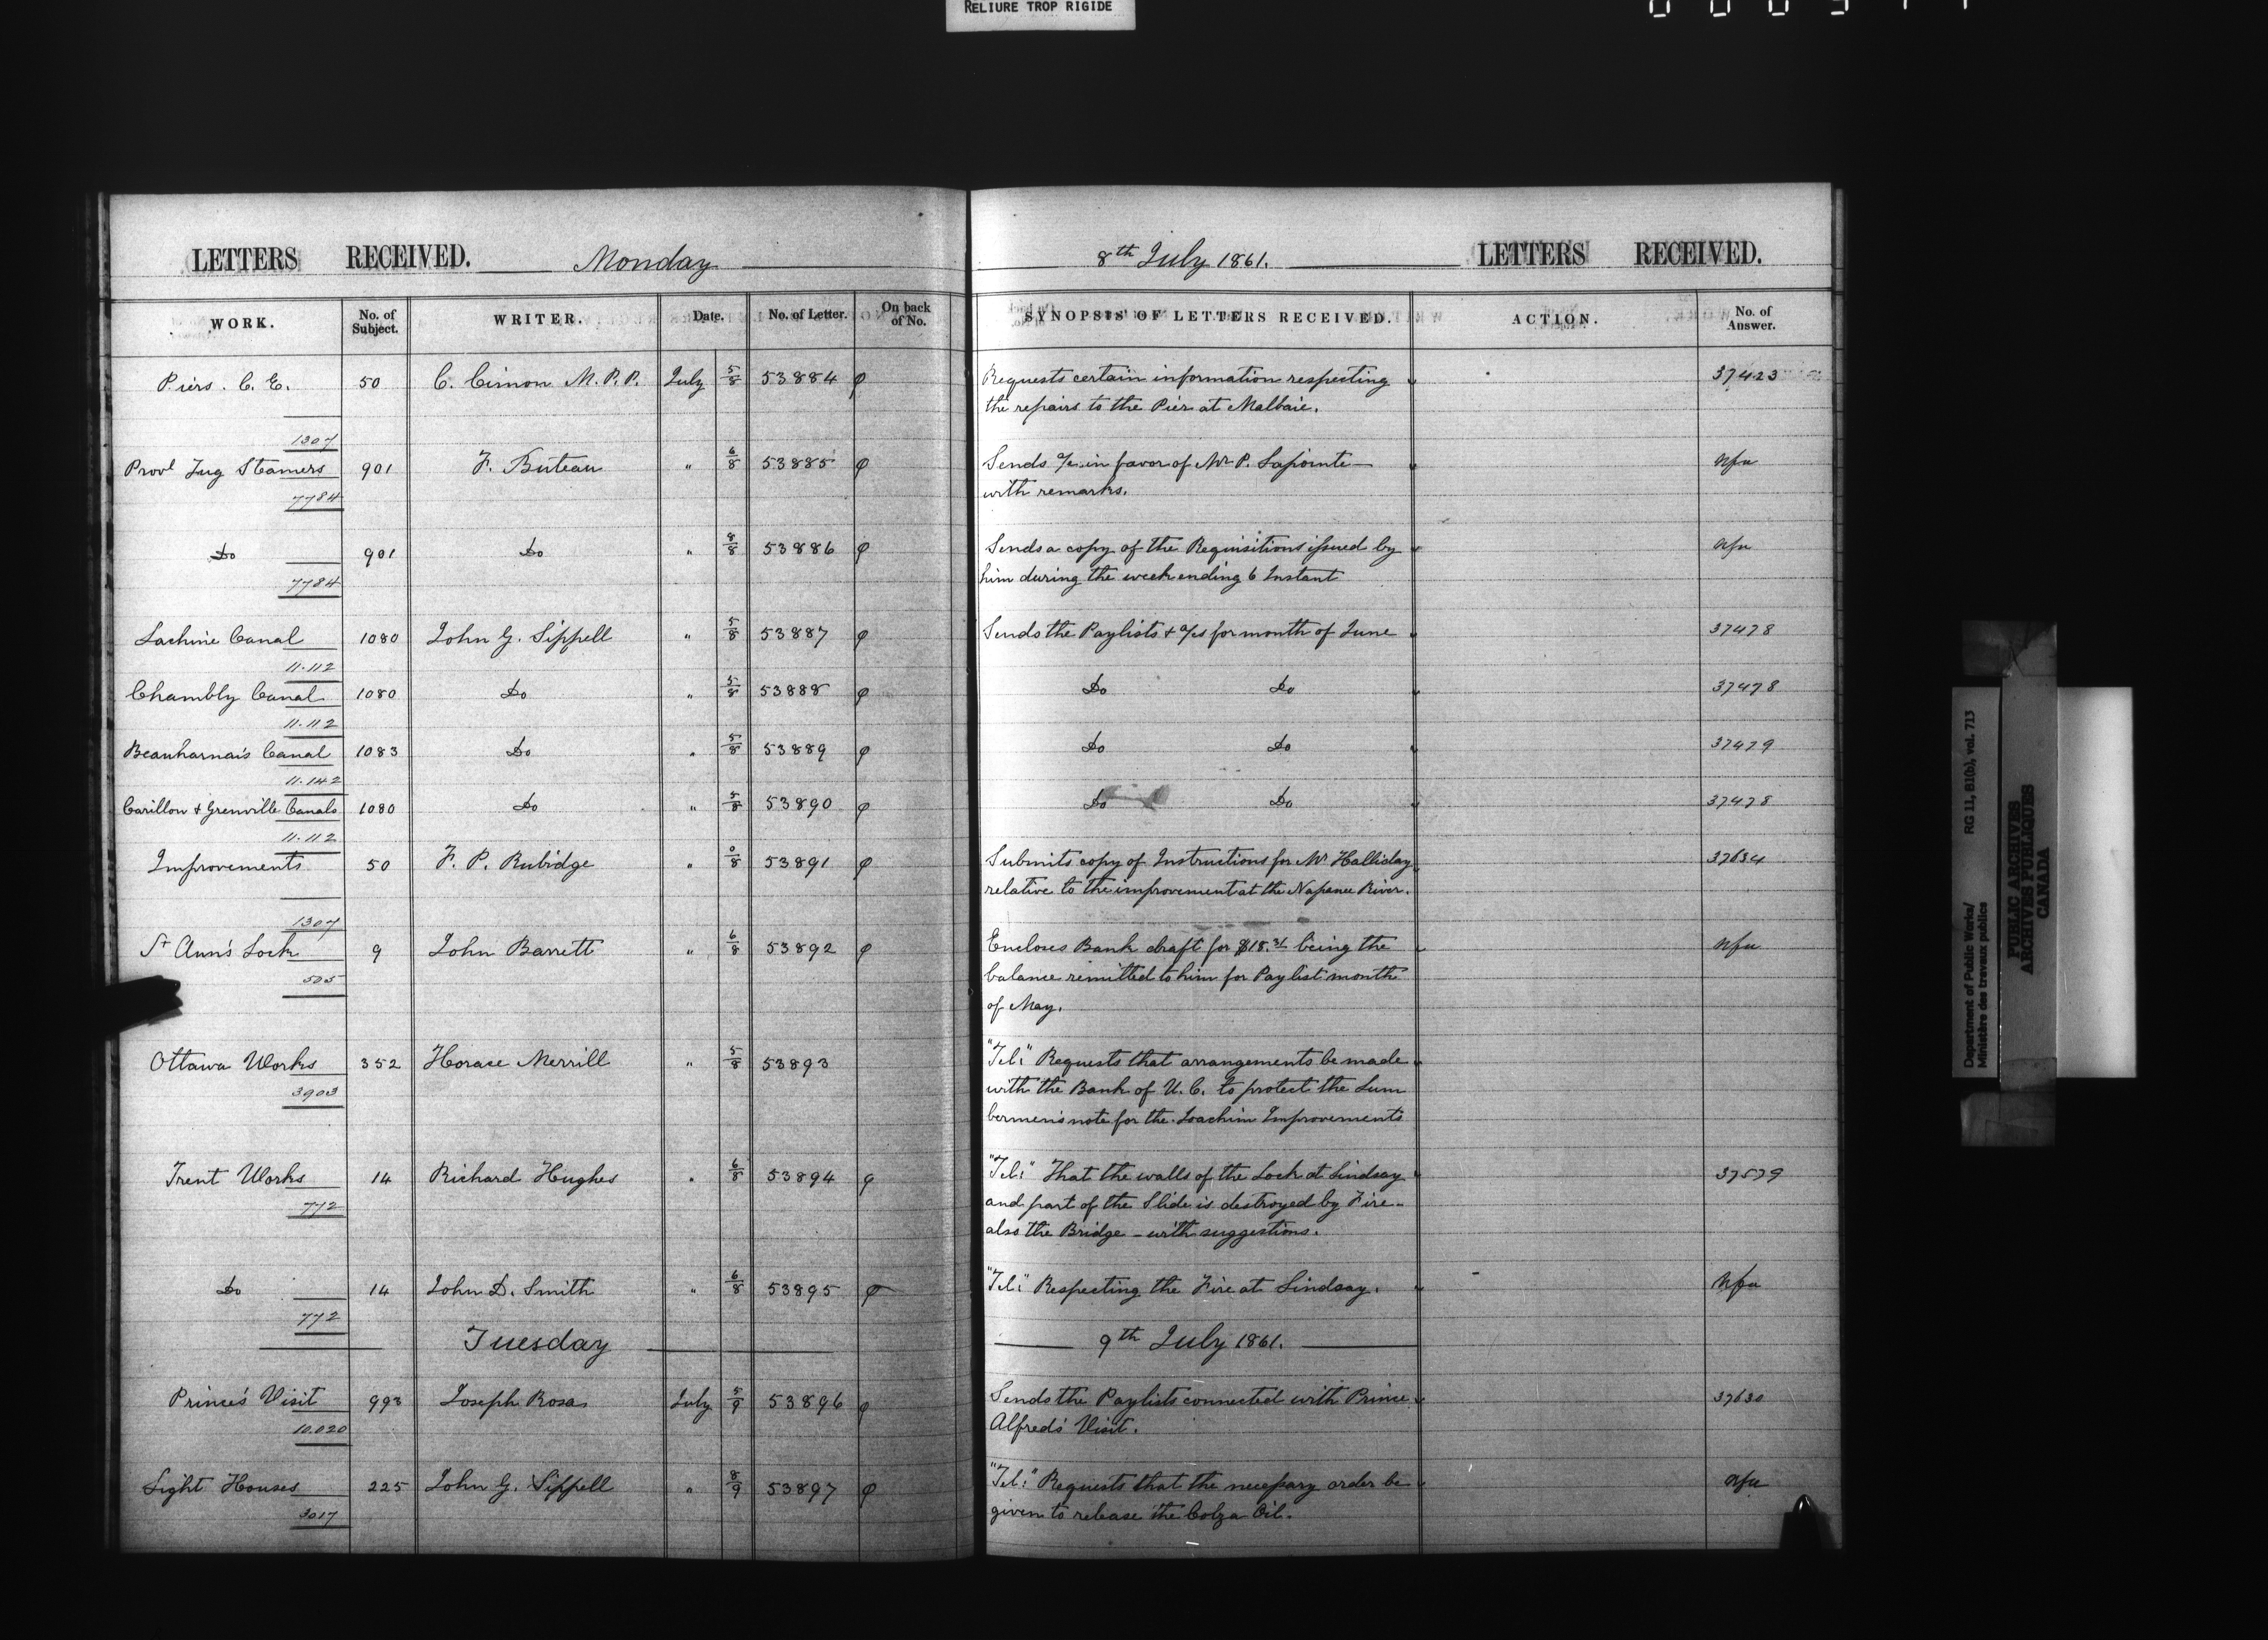 RELIURE TROP RIGIDE
LETTERS RECEIVED. Monday 8th July 1861. LETTERS RECEIVED.
WORK. No. of Subject. WRITER. Date. No. of Letter. On back of No. SYNOPSIS OF LETTERS RECEIVED. ACTION. No. of Answer.
Piers. C. E. 50 C. Cimon M.P.P. July 5/8 53884 φ Requests certain information respecting 37423
the repairs to the Pier at Malbaie.
1307
Provl Tug Steamers 901 F. Buteau " 6/8 53885 φ Sends a/c in favor of Mr P. Lapointe — Nfu
7784 with remarks.
Do 901 Do " 8/8 53886 φ Sends a copy of the Requisitions issued by Nfu
7784 him during the week ending 6 Instant
Lachine Canal 1080 John G. Sippell " 5/8 53887 φ Sends the Paylists & a/cs for month of June 37478
11.112
Chambly Canal 1080 Do " 5/8 53888 φ Do Do 37478
11.112
Beauharnais Canal 1083 Do " 5/8 53889 φ Do Do 37479
11.142
Carillon & Grenville Canals 1080 Do " 5/8 53890 φ Do Do 37478
11.112
Improvements 50 F. P. Rubidge " 0/8 53891 φ Submits copy of Instructions for Mr Halliday 37634
relative to the improvement at the Napanee River.
1307
St Ann's Lock 9 John Barrett " 6/8 53892 φ Encloses Bank draft for $18.31 being the Nfu
505 balance remitted to him for Paylist month
of May.
Ottawa Works 352 Horace Merrill " 5/8 53893 "Tel:" Requests that arrangements be made
3903 with the Bank of U. C. to protect the Lum
bermen's note for the Joachim Improvements
Trent Works 14 Richard Hughes " 6/8 53894 φ "Tel:" That the walls of the Lock at Lindsay 37579
772 and part of the Slide is destroyed by Fire -
also the Bridge - with suggestions.
Do 14 John D. Smith " 6/8 53895 φ "Tel:" Respecting the Fire at Lindsay. Nfu
772
Tuesday 9th July 1861.
Prince's Visit 993 Joseph Rosa July 5/9 53896 φ Sends the Paylists connected with Prince 37630
10.020 Alfred's Visit.
Light Houses 225 John G. Sippell " 8/9 53897 φ "Tel:" Requests that the necessary order be Nfu
3017 given to release the Colza Oil.
Department of Public Works/ RG 11, B1(b), vol. 713
Ministère des travaux publics
PUBLIC ARCHIVES
ARCHIVES PUBLIQUES
CANADA